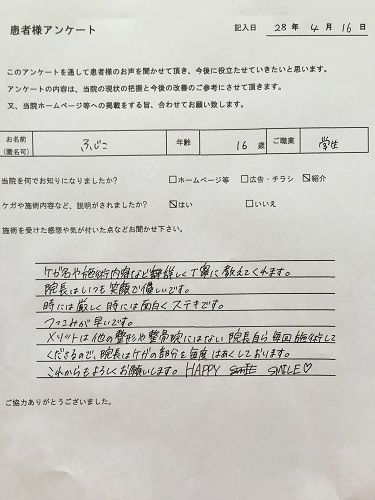 患者様アンケート
記入日 28年4月16日
このアンケートを通して患者様のお声を聞かせて頂き、今後に役立たせていきたいと思います。
アンケートの内容は、当院の現状の把握と今後の改善のご参考にさせて頂きます。
又、当院ホームページ等への掲載をする旨、合わせてお願い致します。
お名前 (匿名可) ふじこ 年齢 16歳 ご職業 学生
当院を何でお知りになりましたか? □ホームページ等 □広告・チラシ ☑紹介
ケガや施術内容など、説明がされましたか? ☑はい □いいえ
施術を受けた感想や気が付いた点などお聞かせ下さい。
ケガ名や施術内容など詳しく丁寧に教えてくれます。
院長はいつも笑顔で優しいです。
時には厳しく時には面白くステキです。
つっこみが早いです。
メリットは他の整形や整骨院にはない院長自ら毎回施術して
くださるので、院長はケガの部分を毎度はあくしております。
これからもよろしくお願いします。HAPPY SMILE♡
ご協力ありがとうございました。